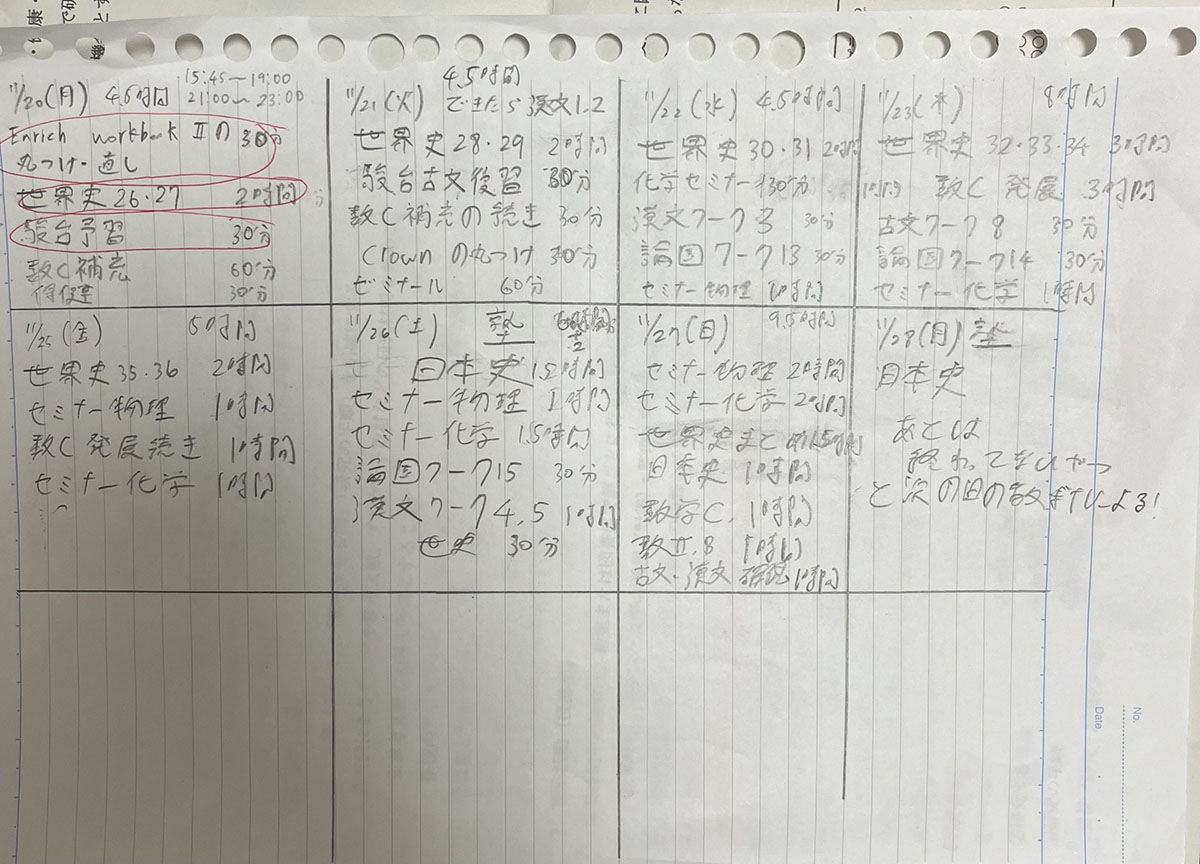 11/20(月) 4.5時間 15:45〜19:00
21:00〜23:00
Enrich workbook Ⅱの 30分
丸つけ・直し
世界史26・27 2時間
駿台予習 30分
数C補充 60分
保健 30分
4.5時間
11/21(火) できたら漢文1.2
世界史28・29 2時間
駿台古文復習 30分
数C補充の続き 30分
Crownの丸つけ 30分
ゼミナール 60分
11/22(水) 4.5時間
世界史30・31 2時間
化学セミナー 30分
漢文ワーク3 30分
論国ワーク13 30分
セミナー物理 1時間
11/23(木) 8時間
世界史32・33・34 3時間
数C発展 3時間
古文ワーク8 30分
論国ワーク14 30分
セミナー化学 1時間
11/25(金) 5時間
世界史35・36 2時間
セミナー物理 1時間
数C発展続き 1時間
セミナー化学 1時間
11/26(土) 塾
日本史 1.5時間
セミナー物理 1時間
セミナー化学 1.5時間
論国ワーク15 30分
漢文ワーク4.5 1時間
世史 30分
11/27(日) 9.5時間
セミナー物理 2時間
セミナー化学 2時間
世界史まとめ 1.5時間
日本史 1時間
数学C. 1時間
数Ⅱ.B 1時間
古文・漢文 解説 1時間
11/28(月) 塾
日本史
あとは
終わってないやつ
と次の日の教科しよう!
No.
Date